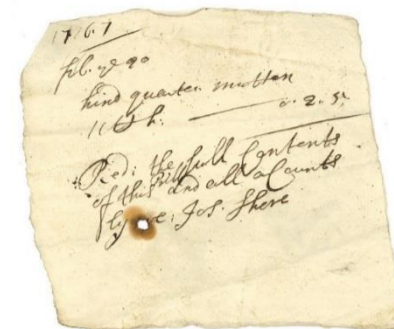 1767
feb. ye 20
hind quarter mutton
11 lb h. 0. 2. 5.
Red: the full Contents
of this Bill and all acounts
by me: Jos. Shere